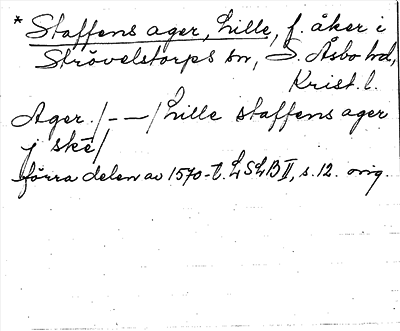 * Staffens ager, Lille, f. åker i
Strövelstorps sn, S. Åsbo hd,
Krist. l.
Ager /- - -/ Lille staffens ager
j skē/
förra delen av 1570-t. LSLB II, s. 12. orig.